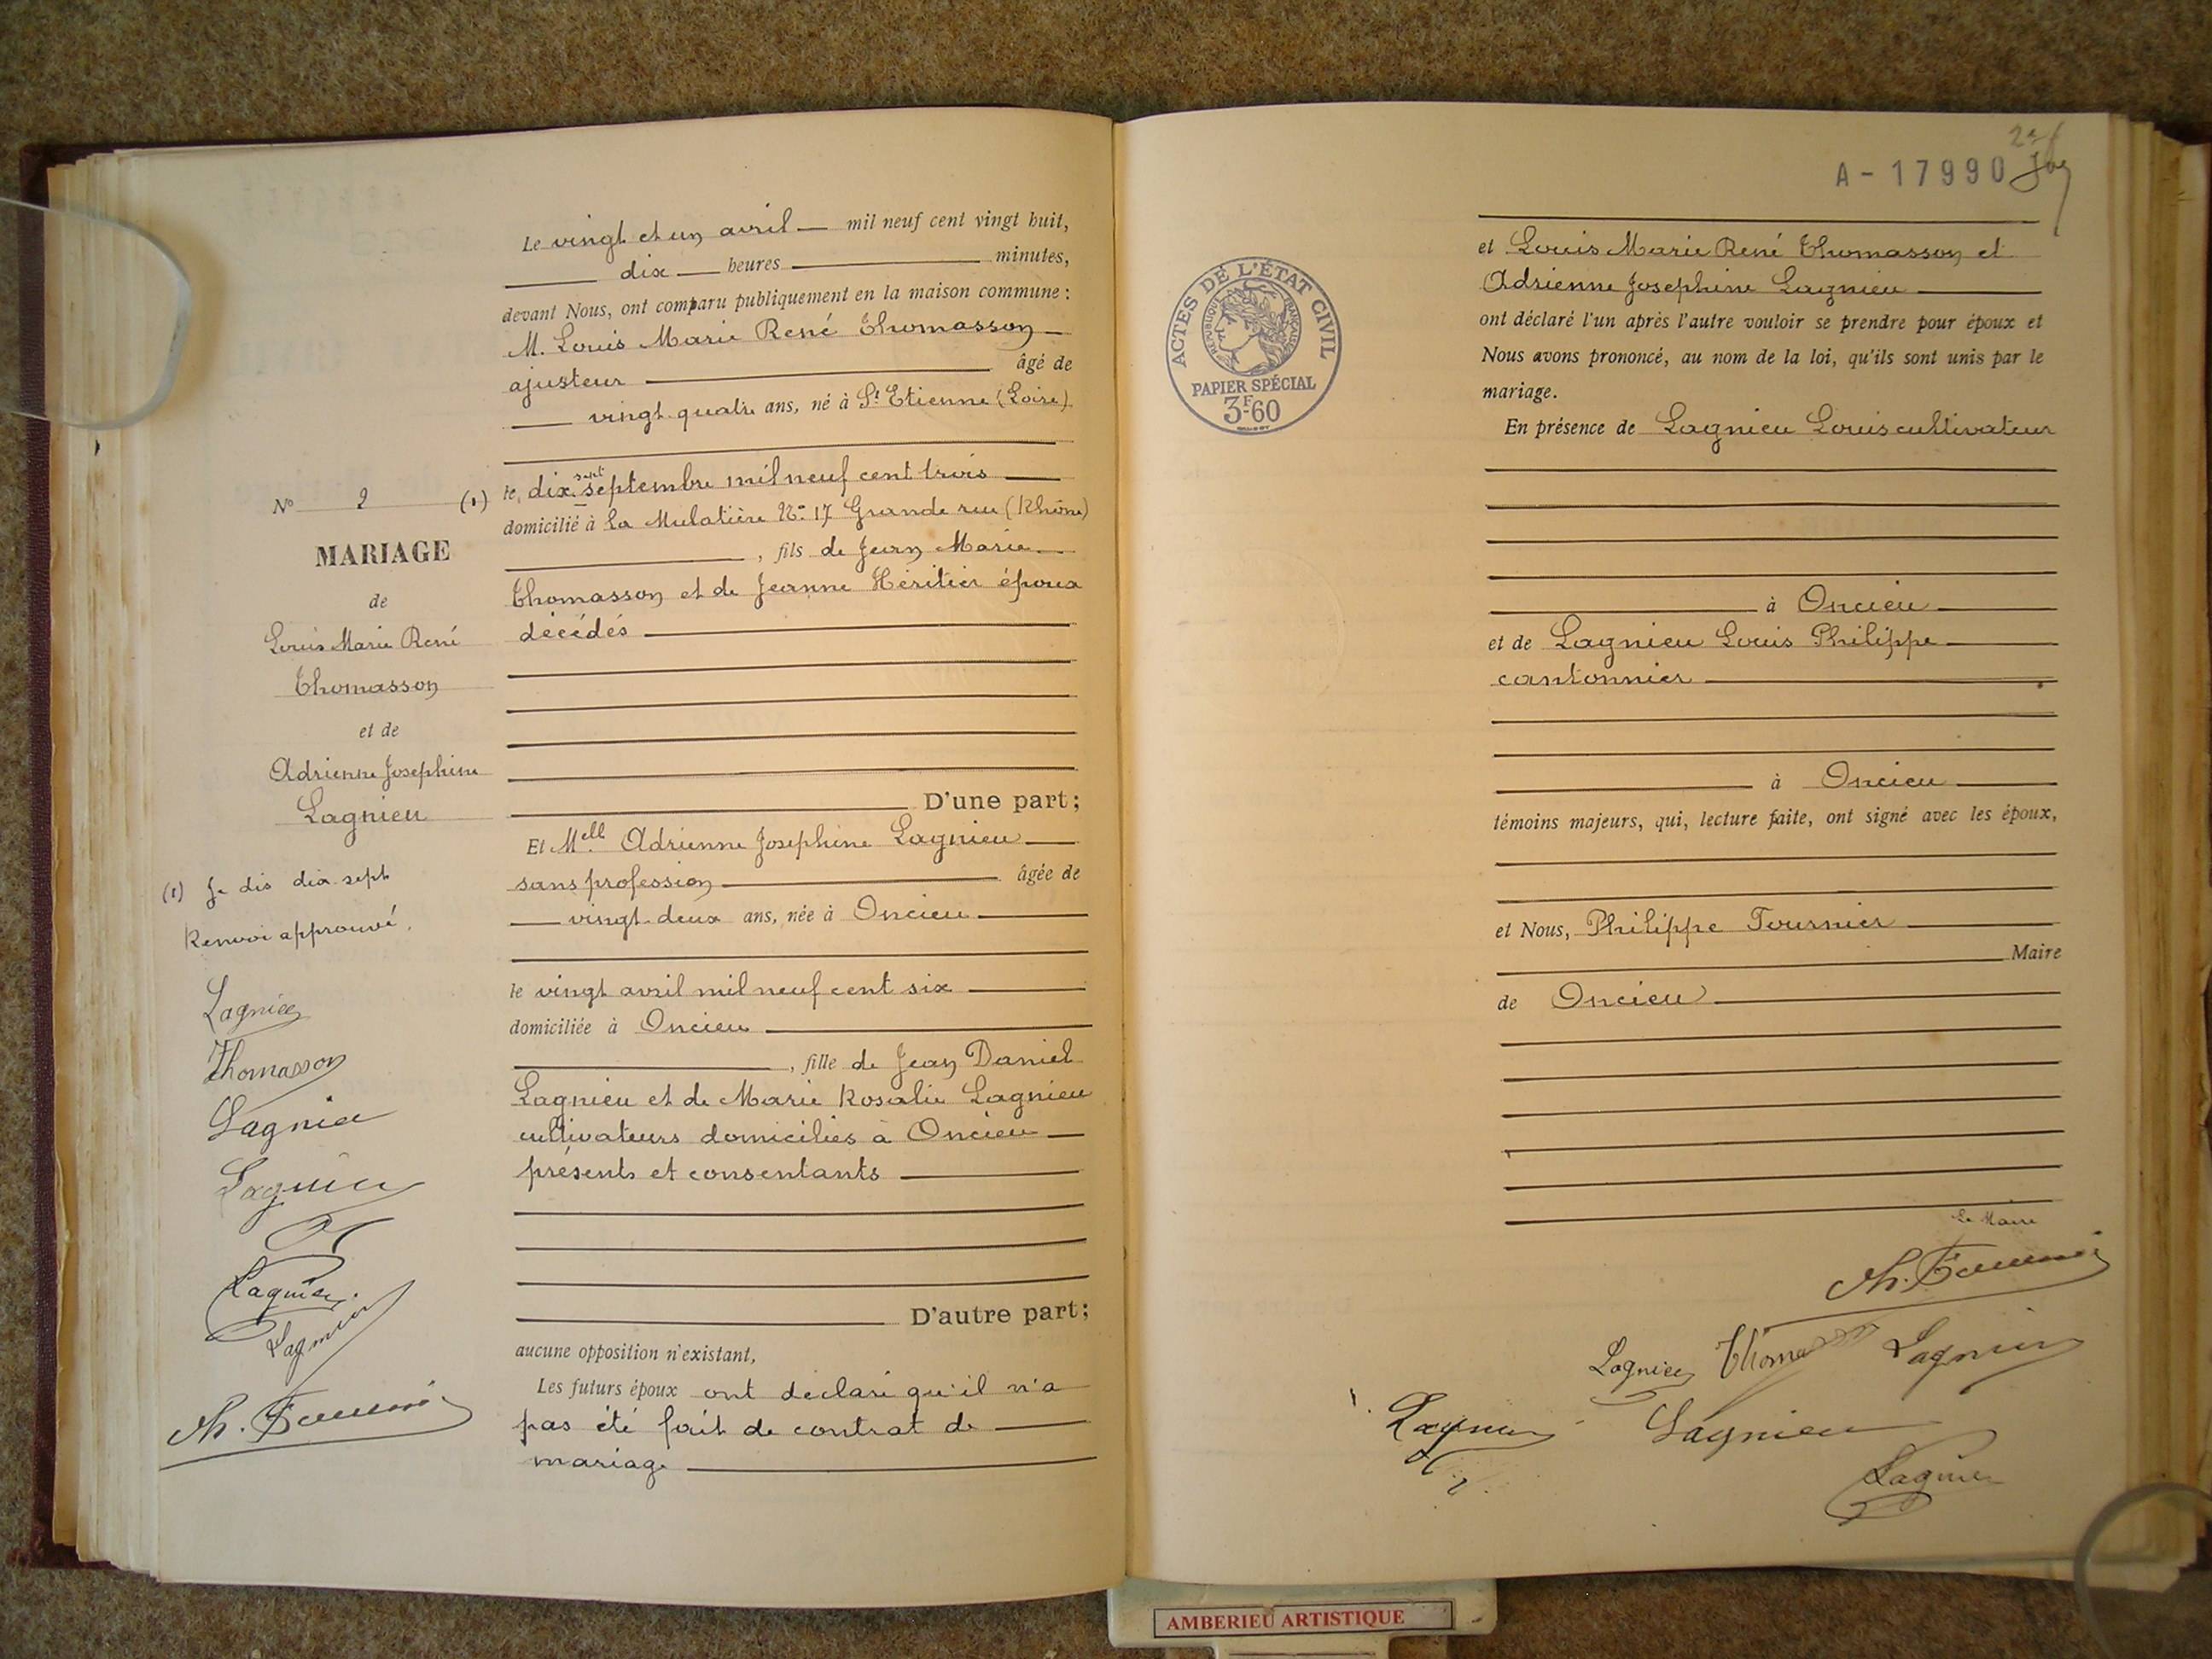 Le vingt et un avril mil neuf cent vingt huit,
dix heures minutes,
devant Nous, ont comparu publiquement en la maison commune :
M. Louis Marie René Thomasson
ajusteur âgé de
vingt quatre ans, né à St Etienne (Loire)
sept
le dix septembre mil neuf cent trois
domicilié à la Mulatière No 17 Grande rue (Rhône)
, fils de Jean Marie
Thomasson et de Jeanne Héritier époux
décédés
D'une part;
Et Mell Adrienne Josephine Lagnieu
sans profession âgée de
vingt deux ans, née à Oncieu
le vingt avril mil neuf cent six
domiciliée à Oncieu
, fille de Jean Daniel
Lagnieu et de Marie Rosalie Lagnieu
cultivateurs domiciliés à Oncieu
présents et consentants
D'autre part;
aucune opposition n'existant,
Les futurs époux ont déclaré qu'il n'a
pas été fait de contrat de
mariage
No 2 (1)
MARIAGE
de
Louis Marie René
Thomasson
et de
Adrienne Josephine
Lagnieu
(1) Je dis dix sept
Renvoi approuvé.
Lagnieu
Thomasson
Lagnieu
Lagnieu
Lagnieu
Lagnieu
Ph. Fournier
A-17990
ACTES DE L'ÉTAT CIVIL
RÉPUBLIQUE FRANÇAISE
PAPIER SPÉCIAL
3F60
et Louis Marie René Thomasson et
Adrienne Josephine Lagnieu
ont déclaré l'un après l'autre vouloir se prendre pour époux et
Nous avons prononcé, au nom de la loi, qu'ils sont unis par le
mariage.
En présence de Lagnieu Louis cultivateur
à Oncieu
et de Lagnieu Louis Philippe
cantonnier
à Oncieu
témoins majeurs, qui, lecture faite, ont signé avec les époux,
et Nous, Philippe Fournier
Maire
de Oncieu
Le Maire
Ph. Fournier
Lagnieu Thomasson Lagnieu
Lagnieu Lagnieu
Lagnieu
AMBERIEU ARTISTIQUE